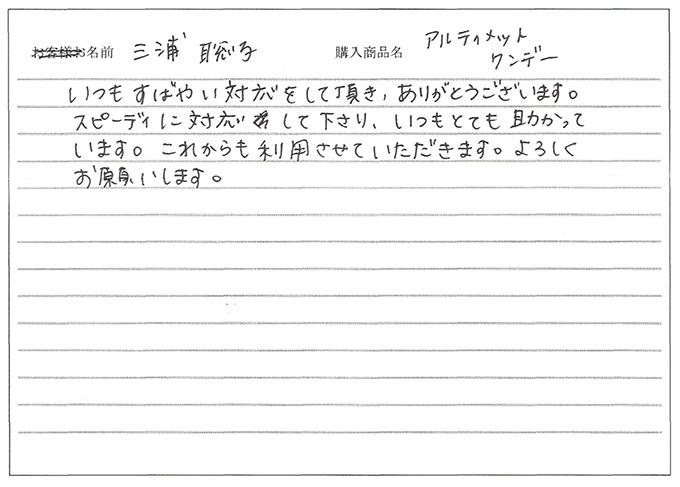 お客様お名前 三浦 聡子 購入商品名 アルティメット
ワンデー
いつもすばやい対応をして頂き、ありがとうございます。
スピーディに対応して下さり、いつもとても助かって
います。これからも利用させていただきます。よろしく
お願いします。